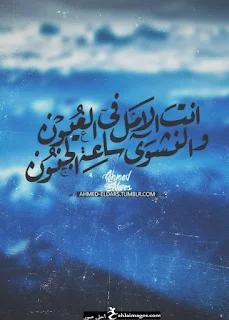 انت الأمل في العيون
والنشوى ساعة الجنون
Ahmed
AHMED-ELDARS.TUMBLR.COM
احلى صور
ahlaimages.com